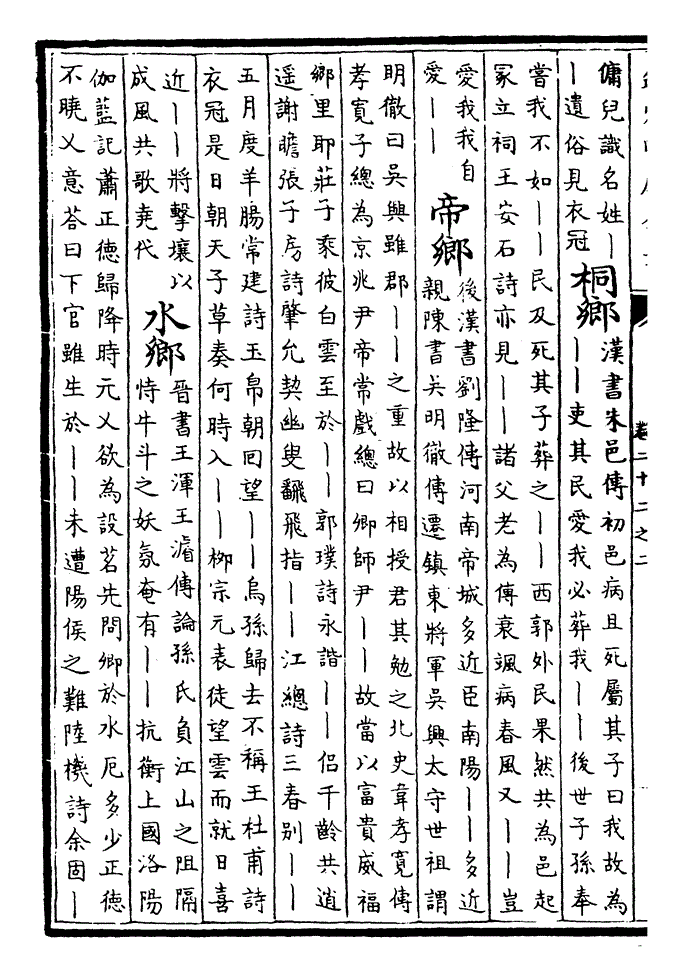 卷二十二之二
傭兒識名姓丨
丨遺俗見衣冠
桐鄉
漢書朱邑傳初邑病且死屬其子曰我故為
丨丨吏其民愛我必葬我丨丨後世子孫奉
嘗我不如丨丨民及死其子葬之丨丨西郭外民果然共為邑起
冢立祠王安石詩亦見丨丨諸父老為傳衰颯病春風又丨丨豈
愛我我自
愛丨丨
帝鄉
後漢書劉隆傳河南帝城多近臣南陽丨丨多近
親陳書吳明徹傳遷鎮東將軍吳興太守世祖謂
明徹曰吳興雖郡丨丨之重故以相授君其勉之北史韋孝寬傳
孝寬子總為京兆尹帝常戲總曰卿師尹丨丨故當以富貴威福
鄉里耶莊子乘彼白雲至於丨丨郭璞詩永諧丨丨侶千齡共逍
遥謝瞻張子房詩肇允契幽叟飜飛指丨丨江總詩三春别丨丨
五月度羊腸常建詩玉帛朝回望丨丨烏孫歸去不稱王杜甫詩
衣冠是日朝天子草奏何時入丨丨柳宗元表徒望雲而就日喜
近丨丨將擊壤以
成風共歌堯代
水鄉
晉書王渾王濬傳論孫氏負江山之阻隔
恃牛斗之妖氛奄有丨丨抗衡上國洛陽
伽藍記蕭正德歸降時元乂欲為設茗先問卿於水厄多少正德
不曉乂意荅曰下官雖生於丨丨未遭陽侯之難陸機詩余固丨